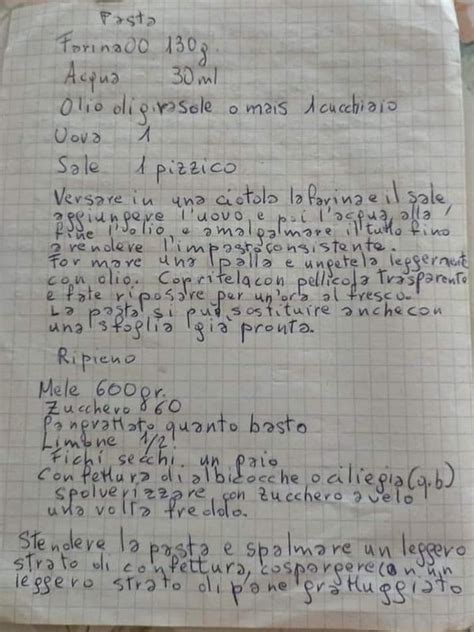 Pasta
Farina 00 130g.
Acqua 30 ml
Olio di girasole o mais 1 cucchiaio
Uova 1
Sale 1 pizzico
Versare in una ciotola la farina e il sale,
aggiungere l'uovo, e poi l'acqua, alla
fine l'olio, e amalgalmare il tutto fino
a rendere l'impasto consistente.
Formare una palla e ungetela leggermente
con olio. Copritela con pellicola trasparente
e fate riposare per un'ora al fresco.
La pasta si può sostituire anche con
una sfoglia già pronta.
Ripieno
Mele 600 gr.
Zucchero 60
Pangrattato quanto basto
Limone 1/2
Fichi secchi un paio
Confettura di albicocche o ciliegia (q.b)
spolverizzare con zucchero a velo
una volta freddo.
Stendere la pasta e spalmare un leggero
strato di confettura, cospargere con un
leggero strato di pane grattuggiato